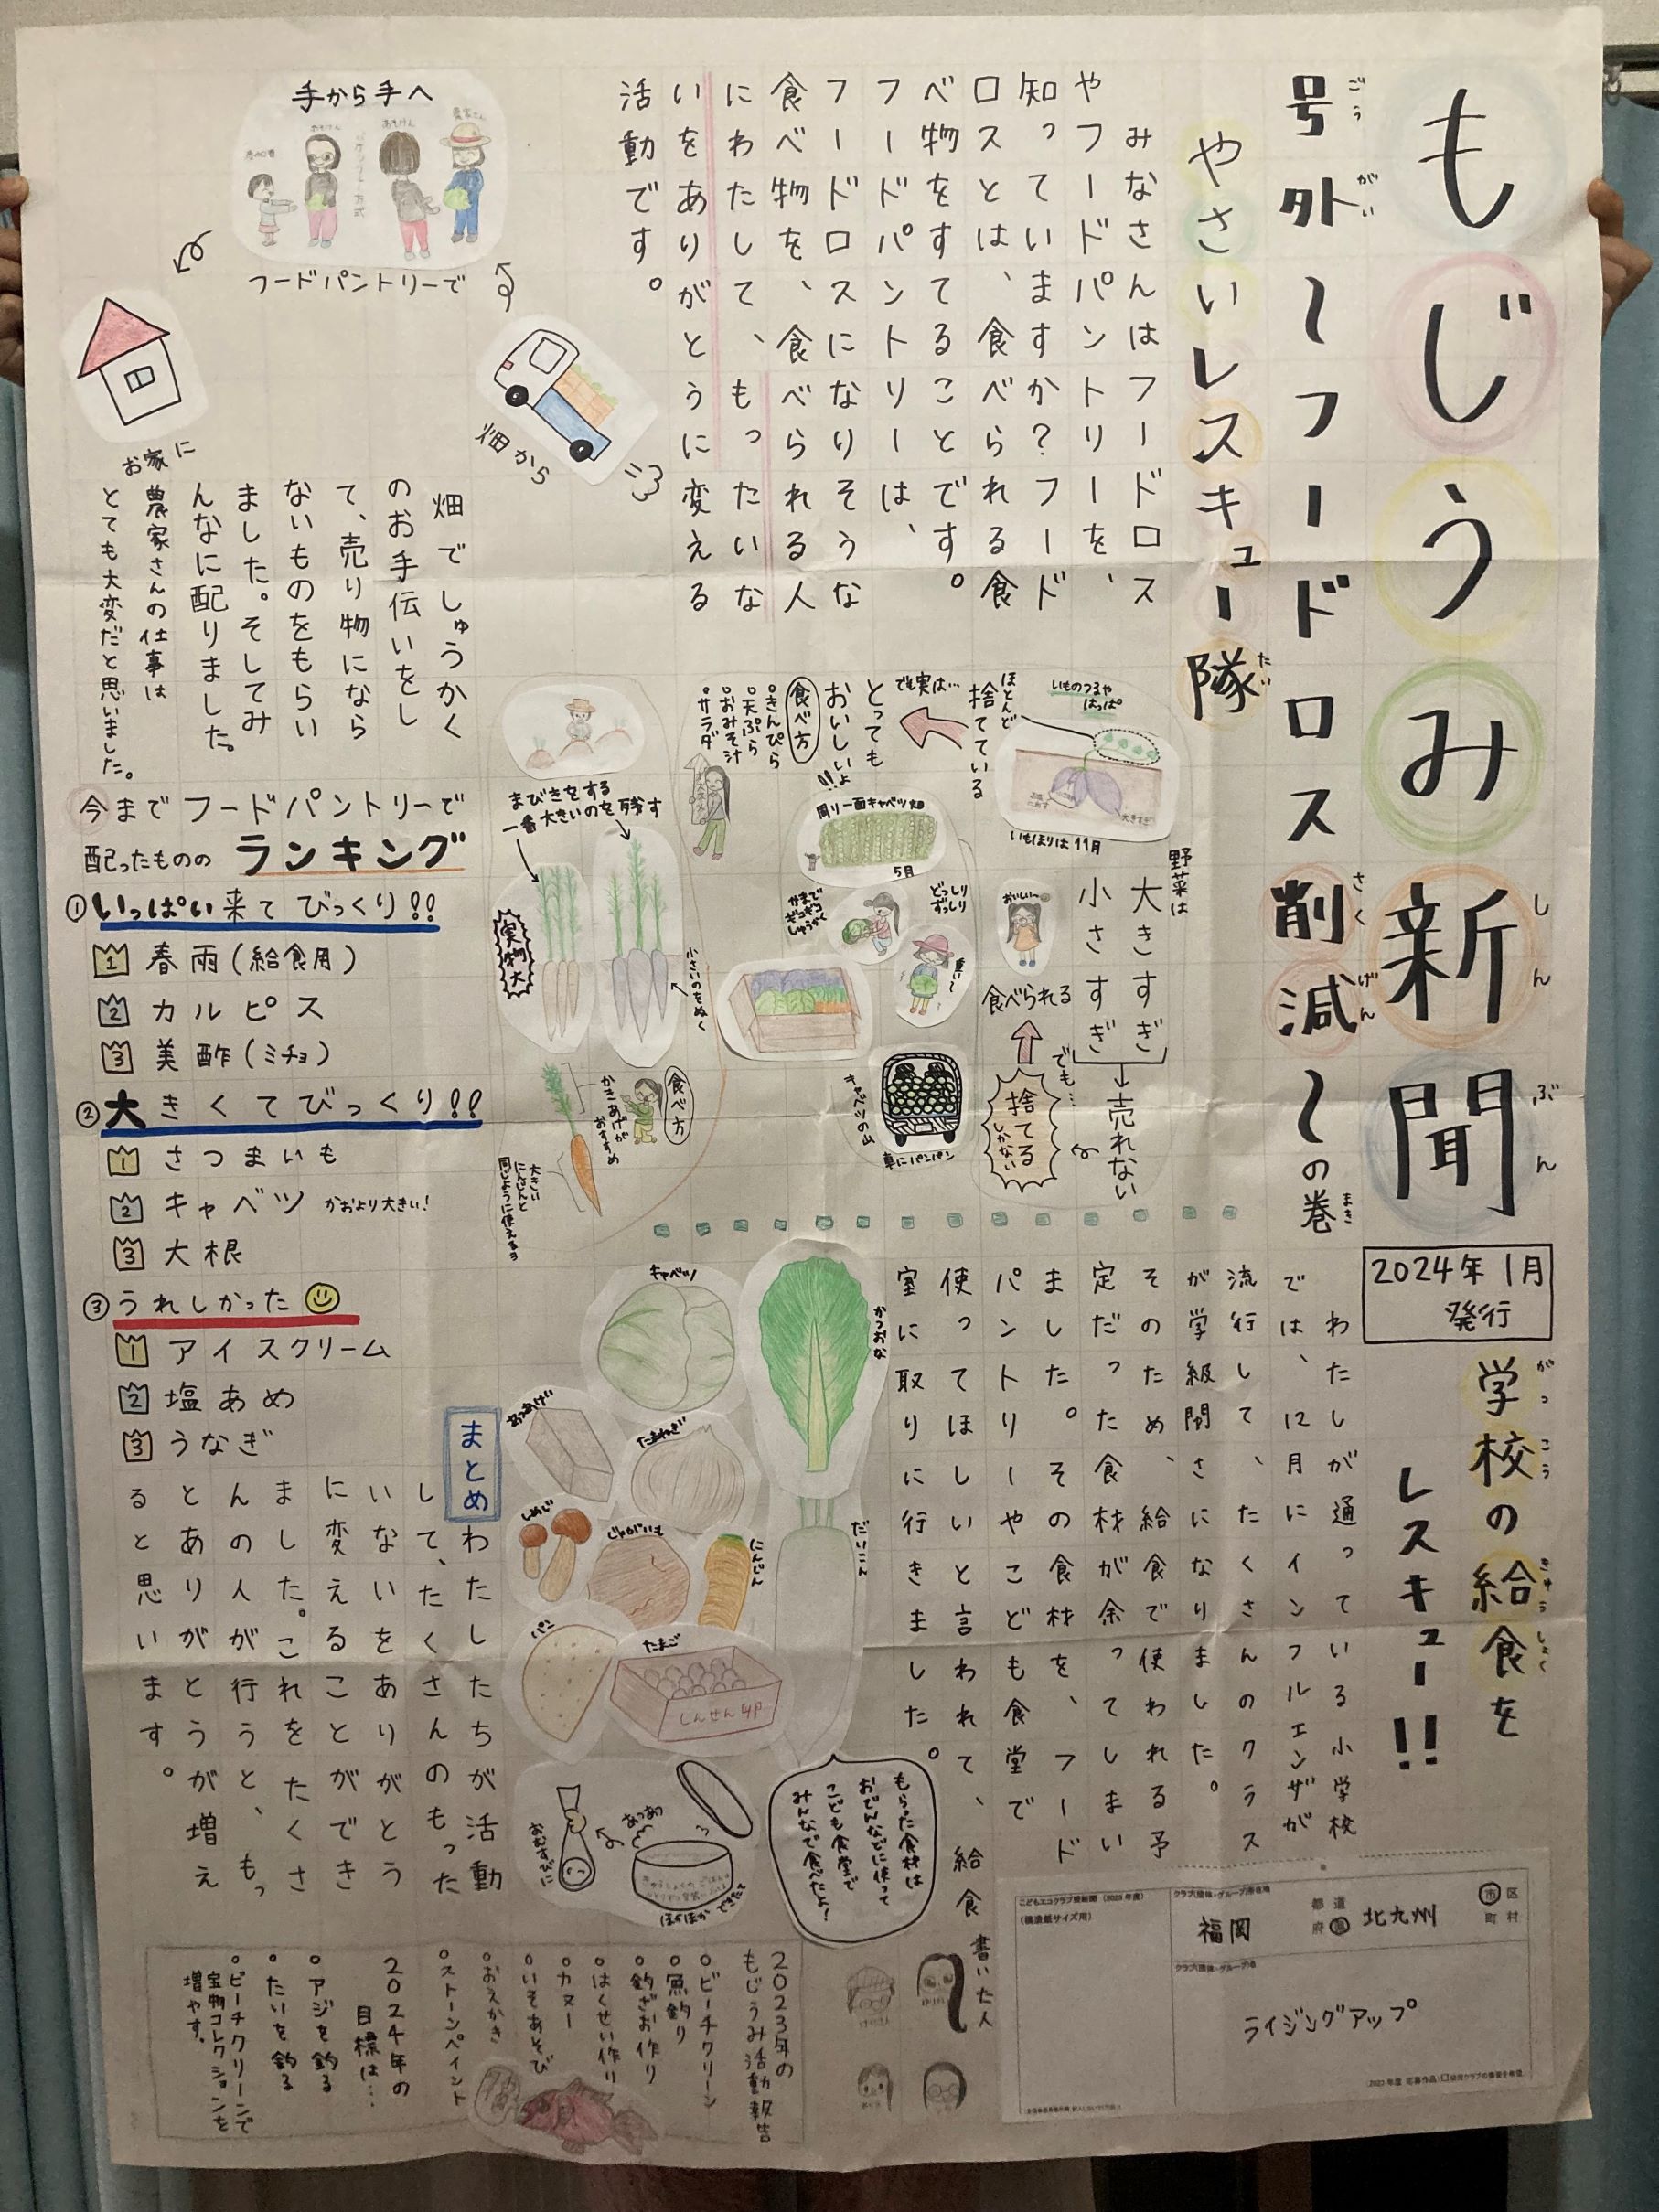 もじうみ新聞
しんぶん
号外〜フードロス削減〜の巻
ごうがい
さくげん
まき
2024年1月
発行
やさいレスキュー隊
たい
みなさんはフードロス
やフードパントリーを、
知っていますか？フード
ロスとは、食べられる食
べ物をすてることです。
フードパントリーは、
フードロスになりそうな
食べ物を、食べられる人
にわたして、もったいな
いをありがとうに変える
活動です。
手から手へ
農家さん
フードパントリーで
畑から
お家に
畑でしゅうかく
のお手伝いをし
て、売り物になら
ないものをもらい
ました。そしてみ
んなに配りました。
農家さんの仕事は
とても大変だと思いました。
いものつるや
はっぱ
ほとんど
捨てている
でも実は…
とっても
おいしいよ!!
食べ方
•きんぴら
•天ぷら
•おみそ汁
•サラダ
いもほりは11月
大きすぎ
周り一面キャベツ畑
5月
かまで
ギコギコ
しゅうかく
どっしり
ずっしり
重い〜
おいしい〜
野菜は
大きすぎ
小さすぎ
売れない
捨てる
しかない
でも…
食べられる
キャベツの山
車にパンパン
まびきをする
一番大きいのを残す
実物大
小さいのをぬく
食べ方
かきあげが
おすすめ
大きい
にんじんと
同じように使えるョ
今までフードパントリーで
配ったものの ランキング
①いっぱい来てびっくり!!
1 春雨(給食用)
2 カルピス
3 美酢(ミチョ)
②大きくてびっくり!!
1 さつまいも
2 キャベツ かおより大きい!
3 大根
③うれしかった
1 アイスクリーム
2 塩あめ
3 うなぎ
学校の給食を
がっこう
きゅうしょく
レスキュー!!
わたしが通っている小学校
では、12月にインフルエンザが
流行して、たくさんのクラス
が学級閉さになりました。
そのため、給食で使われる予
定だった食材が余ってしまい
ました。その食材を、フード
パントリーやこども食堂で
使ってほしいと言われて、給食
室に取りに行きました。
かつおな
キャベツ
あつあげ
たまねぎ
しめじ
じゃがいも
にんじん
だいこん
パン
たまご
しんせん卵
もらった食材は
おでんなどに使って
こども食堂で
みんなで食べたよ!
おむすびに
あつあつ
ほかほか
まとめ
わたしたちが活動
して、たくさんのもった
いないをありがとう
に変えることができ
ました。これをたくさ
んの人が行うと、もっ
とありがとうが増え
ると思います。
書いた人
2023年の
もじうみ活動報告
•ビーチクリーン
•魚釣り
•釣ざお作り
•はくせい作り
•カヌー
•いそあそび
•おえかき
•ストーンペイント
2024年の
目標は…
•アジを釣る
•たいを釣る
•ビーチクリーンで
宝物コレクションを
増やす。
こどもエコクラブ壁新聞(2023年度)
(模造紙サイズ用)
クラブ(団体・グループ)所在地
福岡
都道
府県
北九州
市区
町村
クラブ(団体・グループ)名
ライジングアップ